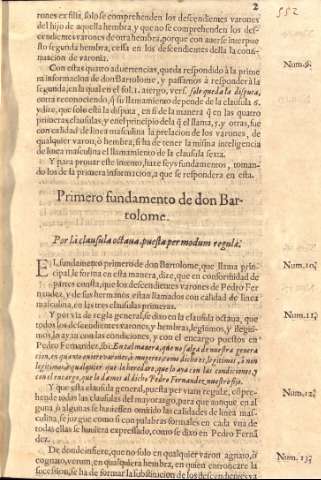 2
552
rones ex filia, solo se comprehenden los descendientes varones
del hijo de aquella hembra, y que no se comprehenden los des-
cendientes varones de otra hembra, porque con auerse interpue
sto segunda hembra, cessa en los descendientes della la confir-
macion de varonia.
Con estas quatro aduertencias, queda respondido à la prime
ra informacion de don Bartolome, y passamos à responder à la
segunda, en la qual en el fol. 1. atergo, vers. solo queda la disputa,
corta reconociendo, q̃ su llamamiento pende de la clausula 6.
y dize, que solo està la disputa, en si de la manera q̃ en las quatro
primeras clausulas, y en el principio de la q̃ el llama, 5. y otras, fue
con calidad de linea masculina la prelacion de los varones, de
qualquier varon, ò hembra, si ha de tener la misma inteligencia
de linea masculina el llamamiento de la clausula sexta.
Y para prouar este intento, haze seys fundamentos, toman-
do los de la primera informacion, a que se respondera en esta.
Num. 9.
Primero fundamento de don Bar-
tolome.
Por la clausula octaua, puesta per modum regulæ.
EL fundamento primero de don Bartolome, que llama prin-
cipal, le forma en esta manera, dize, que en conformidad de
partes consta, que los descendientes varones de Pedro Fer
nandez, y de sus hermanos estan llamados con calidad de linea
masculina, en las tres clausulas primeras.
Num. 10.
Y por via de regla general, se dixo en la clausula octaua, que
todos los descendientes varones, y hembras, legitimos, y illegiti-
mos, la ayan con las condiciones, y con el encargo puestos en
Pedro Fernandez, ibi: En tal manera, que no salga de nuestra genera
cion, en quanto quiere varones, ò mugeres, como dicho es, legitimos, ò non
legitimos, qualquier que lo heredare, que lo aya con las condiciones, y
con el encargo, que lo damos al dicho Pedro Fernandez nuestro fijo.
Num. 11.
Y que esta clausula general, puesta per viam regulæ, cõpre-
hende todas las clausulas del mayorazgo, para que aunque en al-
guna, ò algunas se huuiessen omitido las calidades de linea mas-
culina, se juzgue como si con palabras formales en cada vna de
todas ellas se huuiera expressado, como se dixo en Pedro Fernã
dez.
Num. 12.
De donde infiere, que no solo en qualquier varon agnato, ò
cognato, verum, en qualquiera hembra, en quien entroncare la
succession, se ha de formar la subdiuision de los descendientes va
Num. 13.